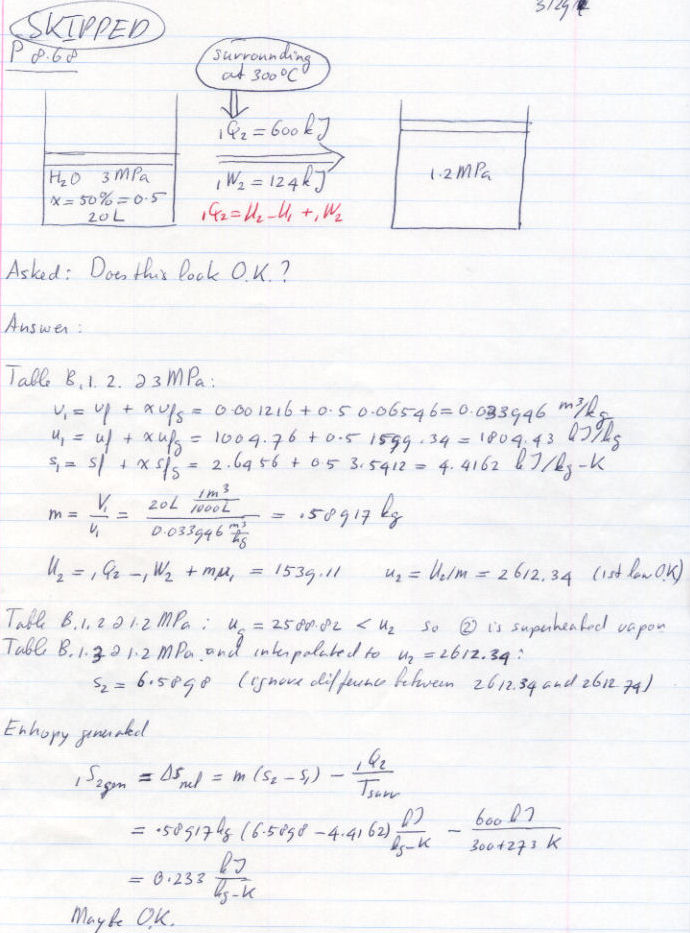 3/29/
SKIPPED
P 8.68
surrounding
at 300°C
₁Q₂ = 600 kJ
₁W₂ = 124 kJ
₁Q₂ = U₂ - U₁ + ₁W₂
H₂O 3 MPa
x = 50% = 0.5
20L
1.2 MPa
Asked: Does this look O.K.?
Answer:
Table B.1.2. @ 3 MPa:
v₁ = vf + x vfg = 0.001216 + 0.5 0.06546 = 0.033946 m³/kg
u₁ = uf + x ufg = 1004.76 + 0.5 1599.34 = 1804.43 kJ/kg
s₁ = sf + x sfg = 2.6456 + 0.5 3.5412 = 4.4162 kJ/kg-K
m = V₁/v₁ = 20L 1m³/1000L / 0.033946 m³/kg = .58917 kg
U₂ = ₁Q₂ - ₁W₂ + mu₁ = 1539.11 u₂ = U₂/m = 2612.34 (1st law OK)
Table B.1.2 @ 1.2 MPa: ug = 2588.82 < u₂ so ② is superheated vapor
Table B.1.3 @ 1.2 MPa and interpolated to u₂ = 2612.34:
s₂ = 6.5898 (ignore difference between 2612.34 and 2612.74)
Entropy generated
₁S₂gen = ΔSnet = m (s₂ - s₁) - ₁Q₂/Tsurr
= .58917 kg (6.5898 - 4.4162) kJ/kg-K - 600 kJ/300+273 K
= 0.233 kJ/kg-K
Maybe O.K.